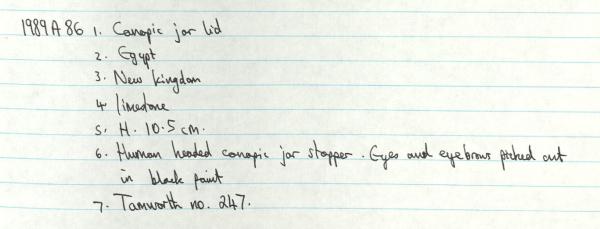 1989A86 1. Canopic jar lid
2. Egypt
3. New Kingdom
4. limestone
5. H. 10.5 cm.
6. Human headed canopic jar stopper. Eyes and eyebrows picked out
in black paint
7. Tamworth no. 247.